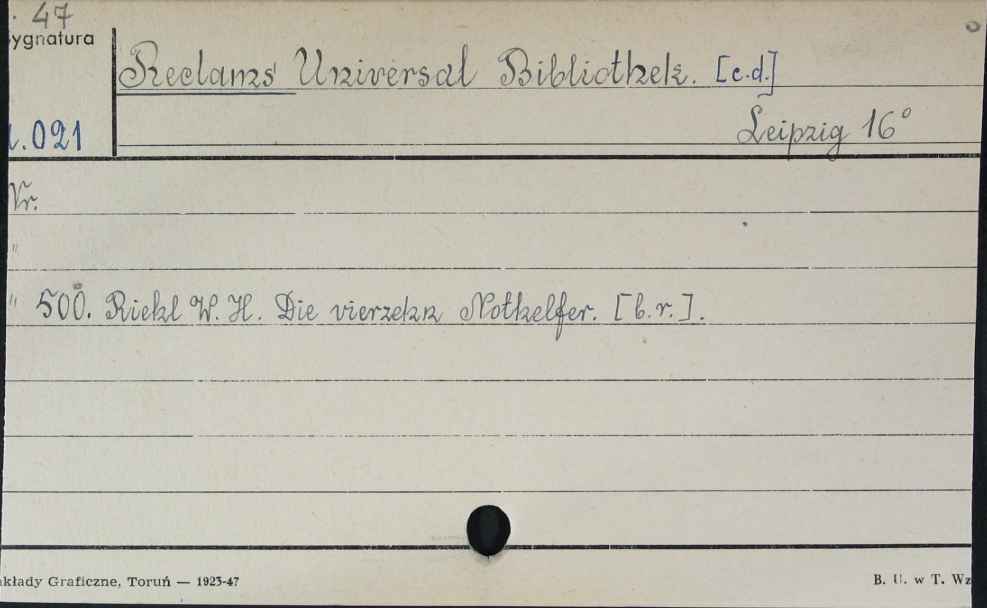 47
ygnatura
Reclams Universal Bibliothek. [c.d.]
.021
Leipzig 16°
Nr.
"
" 500. Riehl W. H. Die vierzehn Nothelfer. [b.r.].
kłady Graficzne, Toruń — 1923-47
B. U. w T. Wz